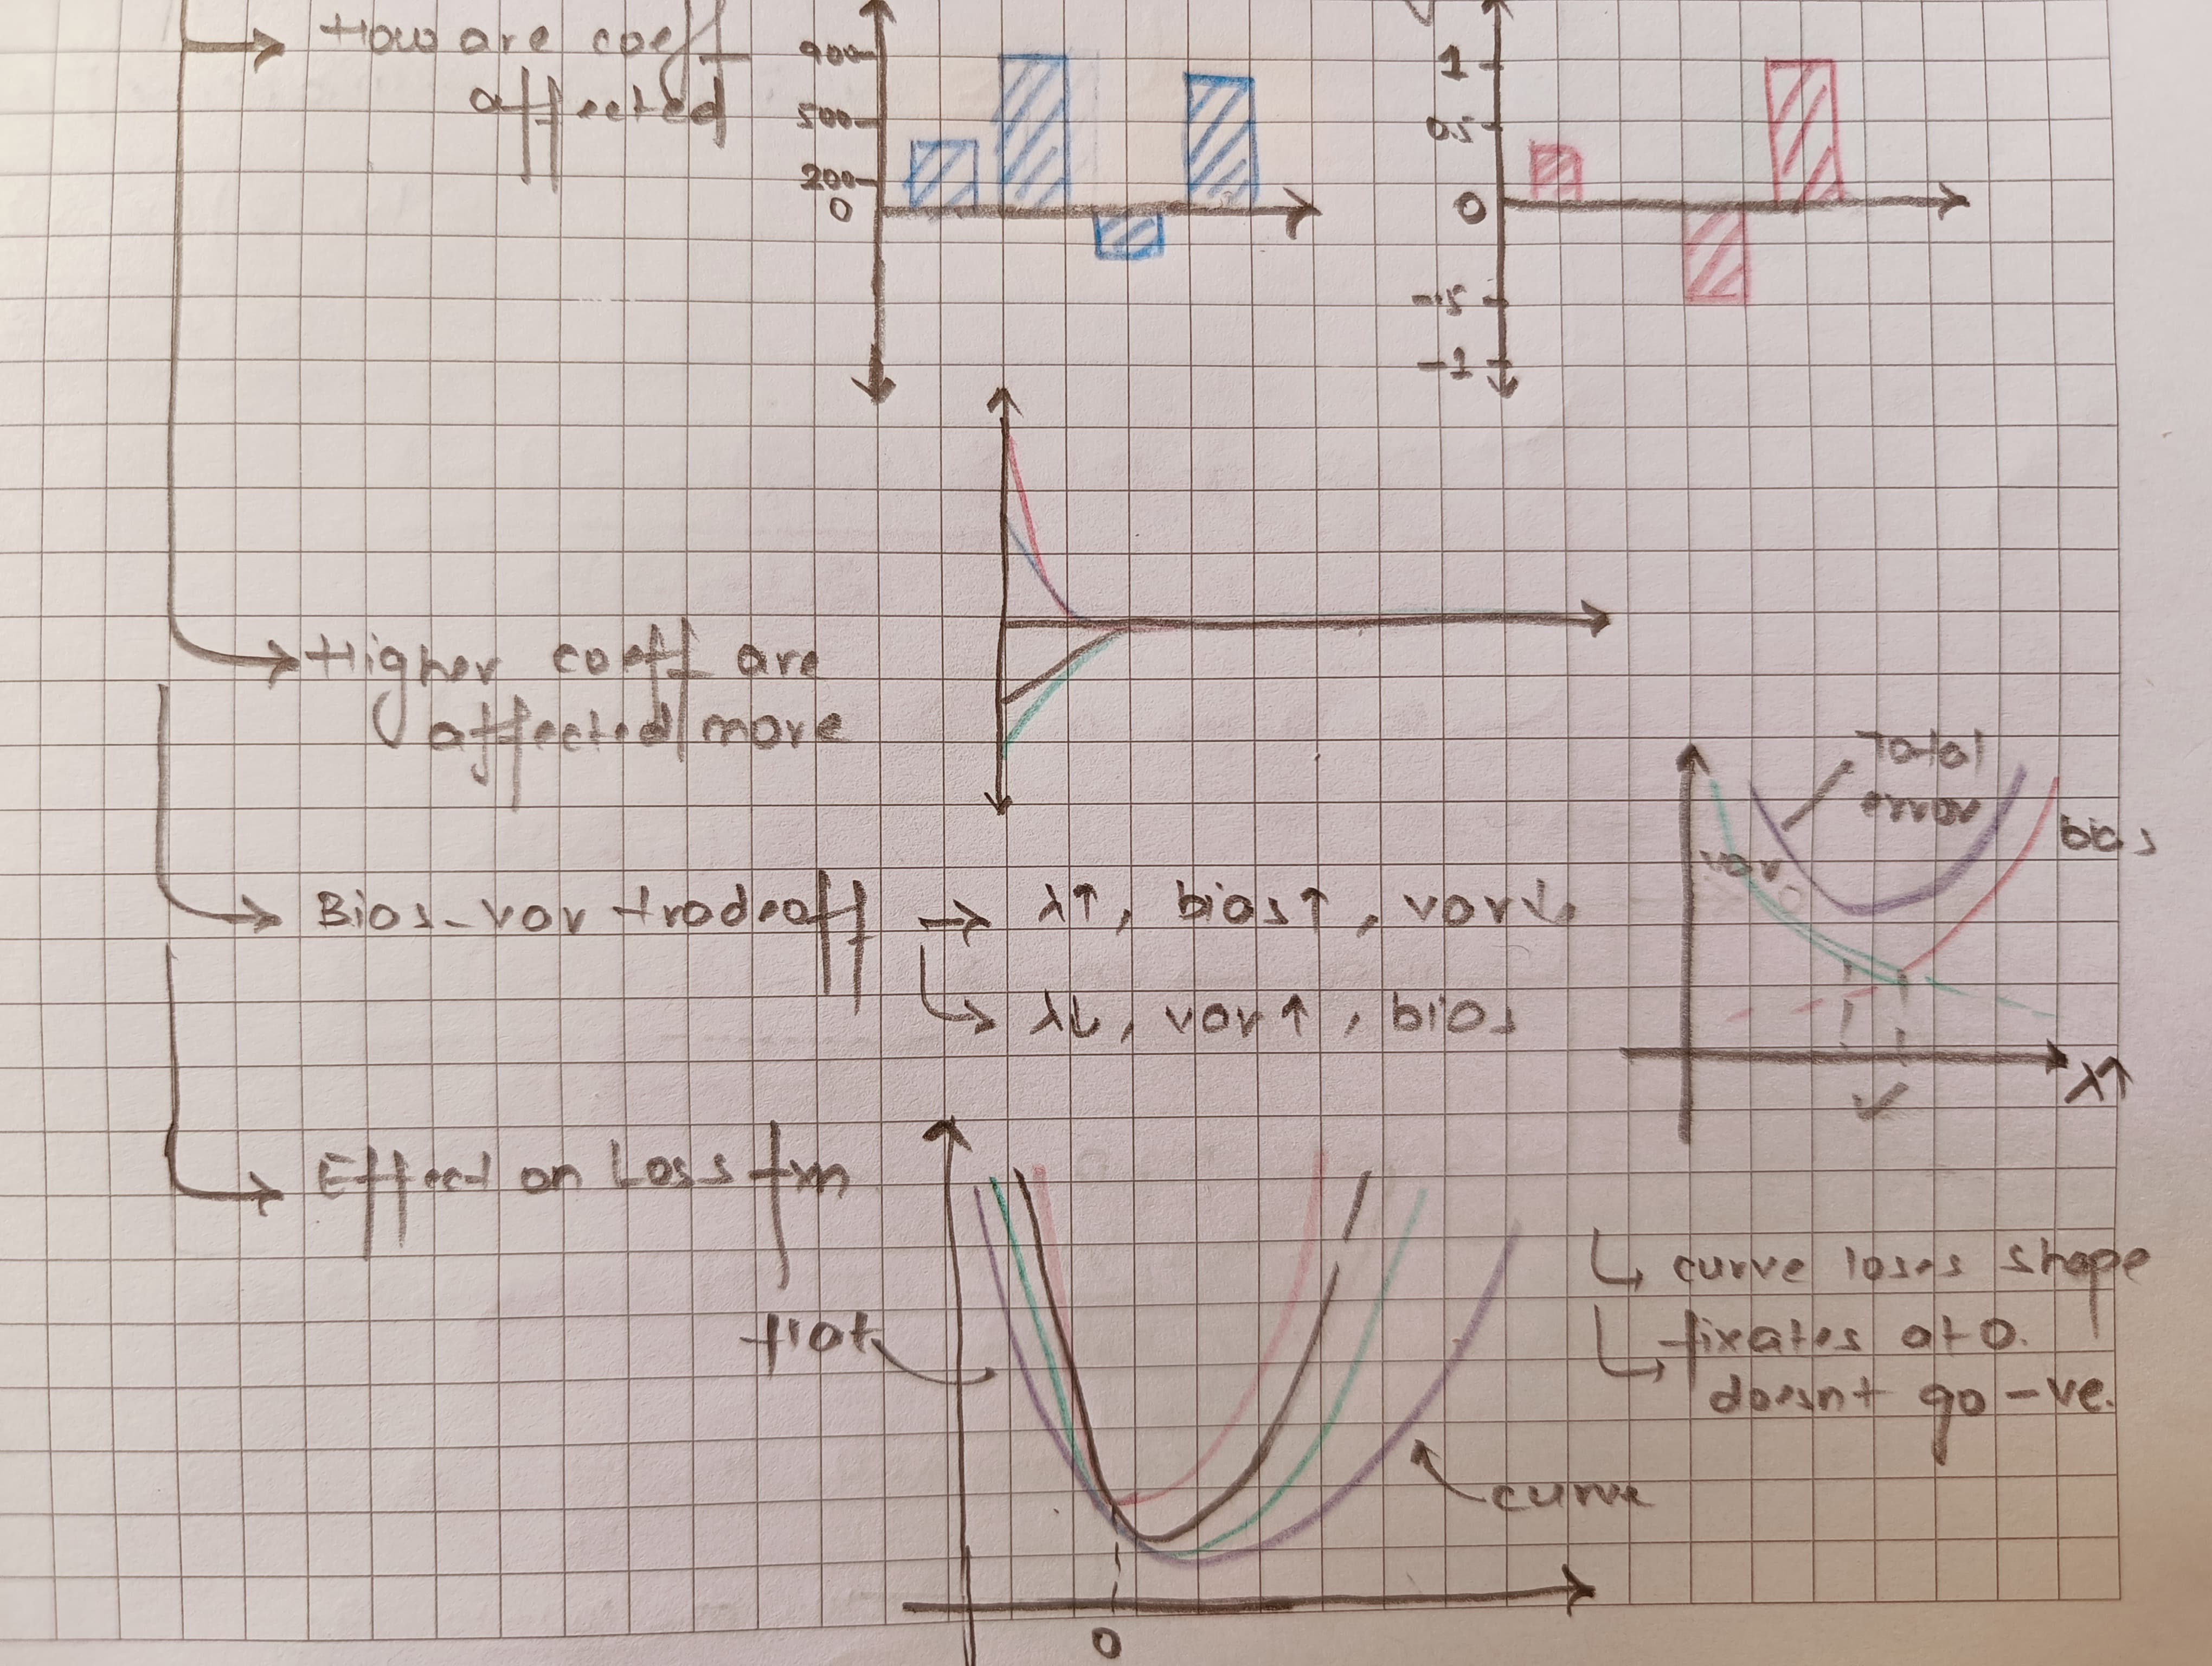 How are coeff
affected
900
500
200
0
1
0.5
0
-.5
-1
Higher coeff are
affected more
Total
error
bias
var
Bias-var tradeoff → λ↑, bias↑, var↓
λ↓, var↑, bias
λ↑
Effect on Loss fxn
flat
curve loses shape
fixates at 0.
doesnt go -ve.
curve
0